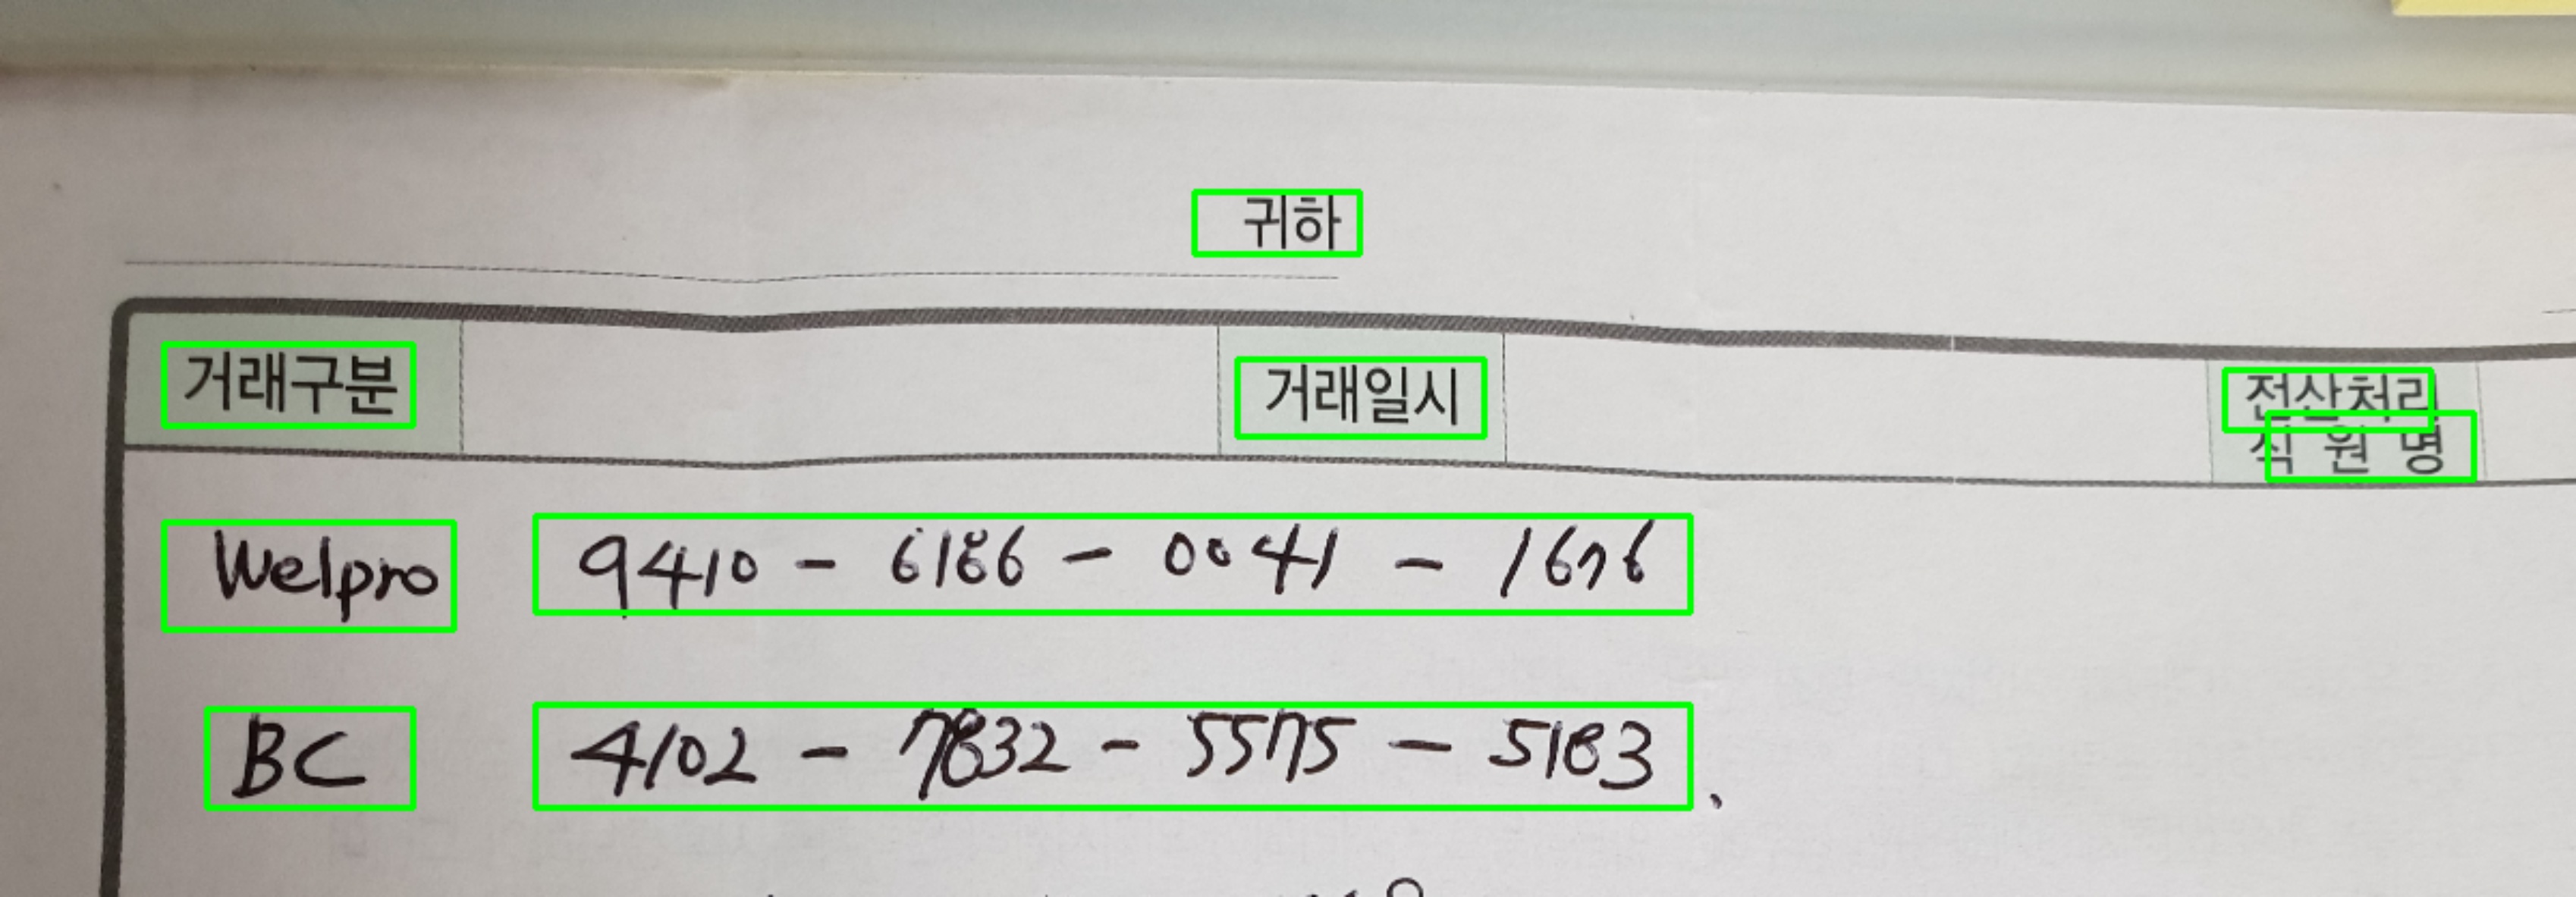 귀하
거래구분 거래일시 전산처리
직 원 명
Welpro 9410 - 6186 - 0041 - 1676
BC 4102 - 7832 - 5575 - 5183.